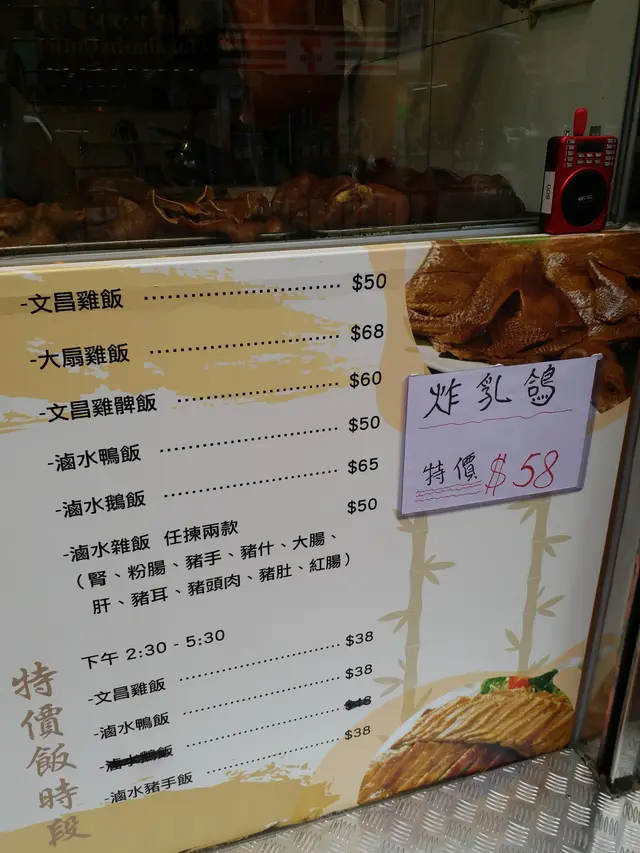 -文昌雞飯 ........................ $50
-大扇雞飯 ........................ $68
-文昌雞髀飯 ........................ $60
-滷水鴨飯 ........................ $50
-滷水鵝飯 ........................ $65
-滷水雜飯 任揀兩款 $50
(腎、粉腸、豬手、豬什、大腸、
肝、豬耳、豬頭肉、豬肚、紅腸)
炸乳鴿
特價 $58
特價飯時段
下午 2:30 - 5:30
-文昌雞飯 ........................ $38
-滷水鴨飯 ........................ $38
-滷水鵝飯 ........................ $48
-滷水豬手飯 ........................ $38